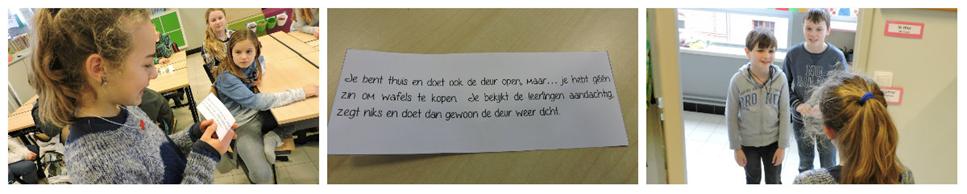 Je bent thuis en doet ook de deur open, maar... je hebt géén
zin om wafels te kopen. Je bekijkt de leerlingen aandachtig,
zegt niks en doet dan gewoon de deur weer dicht.